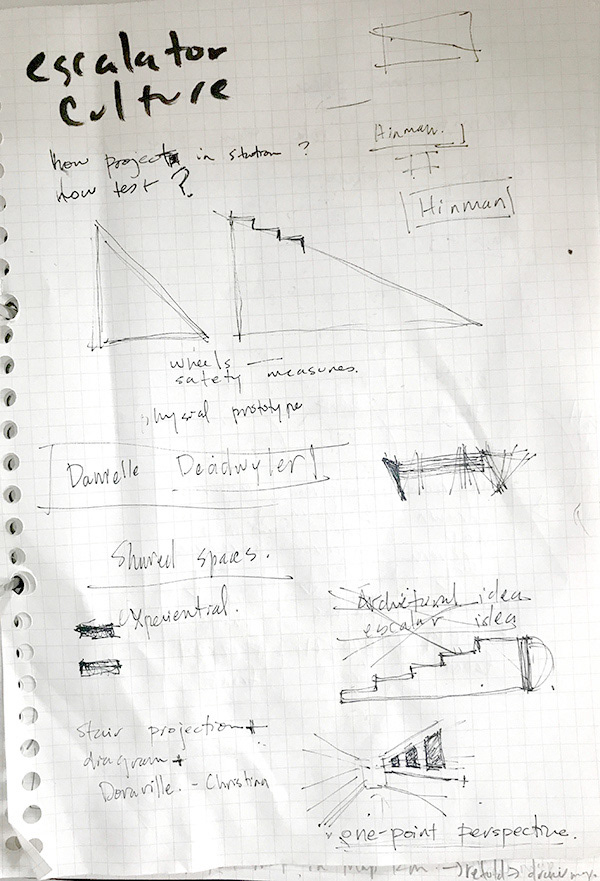 escalator
culture
how project in station ?
now test ?
Hinman.
Hinman
wheels —
safety measures.
physical prototype
Danielle Deadwyler!
Shared spaces.
experiential.
Architectural idea
escalar idea
stair projection +
diagram +
Doraville. - Christina
one-point perspective.
in map